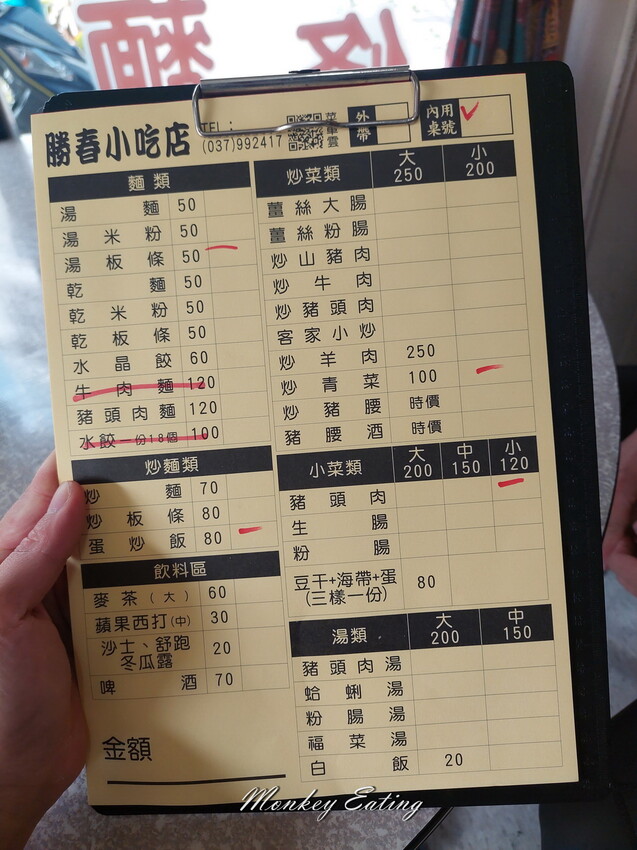 勝春小吃店
TEL：
(037)992417
菜單雲
外帶
內用桌號
麵類
湯麵 50
湯米粉 50
湯板條 50
乾麵 50
乾米粉 50
乾板條 50
水晶餃 60
牛肉麵 120
豬頭肉麵 120
水餃一份18個 100
炒麵類
炒麵 70
炒板條 80
蛋炒飯 80
飲料區
麥茶(大) 60
蘋果西打(中) 30
沙士、舒跑
冬瓜露 20
啤酒 70
金額
炒菜類 大250 小200
薑絲大腸
薑絲粉腸
炒山豬肉
炒牛肉
炒豬頭肉
客家小炒
炒羊肉 250
炒青菜 100
炒豬腰 時價
豬腰酒 時價
小菜類 大200 中150 小120
豬頭肉
生腸
粉腸
豆干+海帶+蛋
(三樣一份) 80
湯類 大200 中150
豬頭肉湯
蛤蜊湯
粉腸湯
福菜湯
白飯 20
Monkey Eating